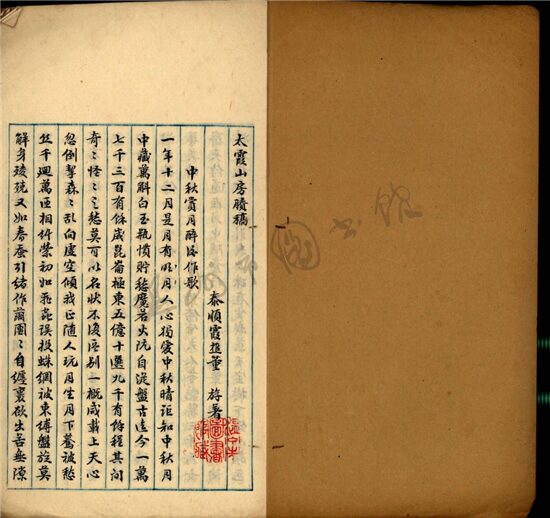 太霞山房賸稿
泰順霞進董斿著
中秋賞月醉後作歌
一年十二月是月有明月人心獨愛中秋晴詎知中秋月
中藏萬斛白玉瓶慣貯愁魔若火阬自從盤古迄今一萬
七千三百有餘歲崑崙極東五億十選九千有餘程其间
奇〻怪〻之愁莫可以名狀不復區别一概咸載上天心
忽倒挈森〻乱向虛空傾我正隨人玩月生月下驀被愁
丝千迴萬匝相纡縈初如飛蟲误投蛛網被束縛盤旋莫
解身琖琖又如春蚕引緒作繭團〻自纏裹欲出苦無隙